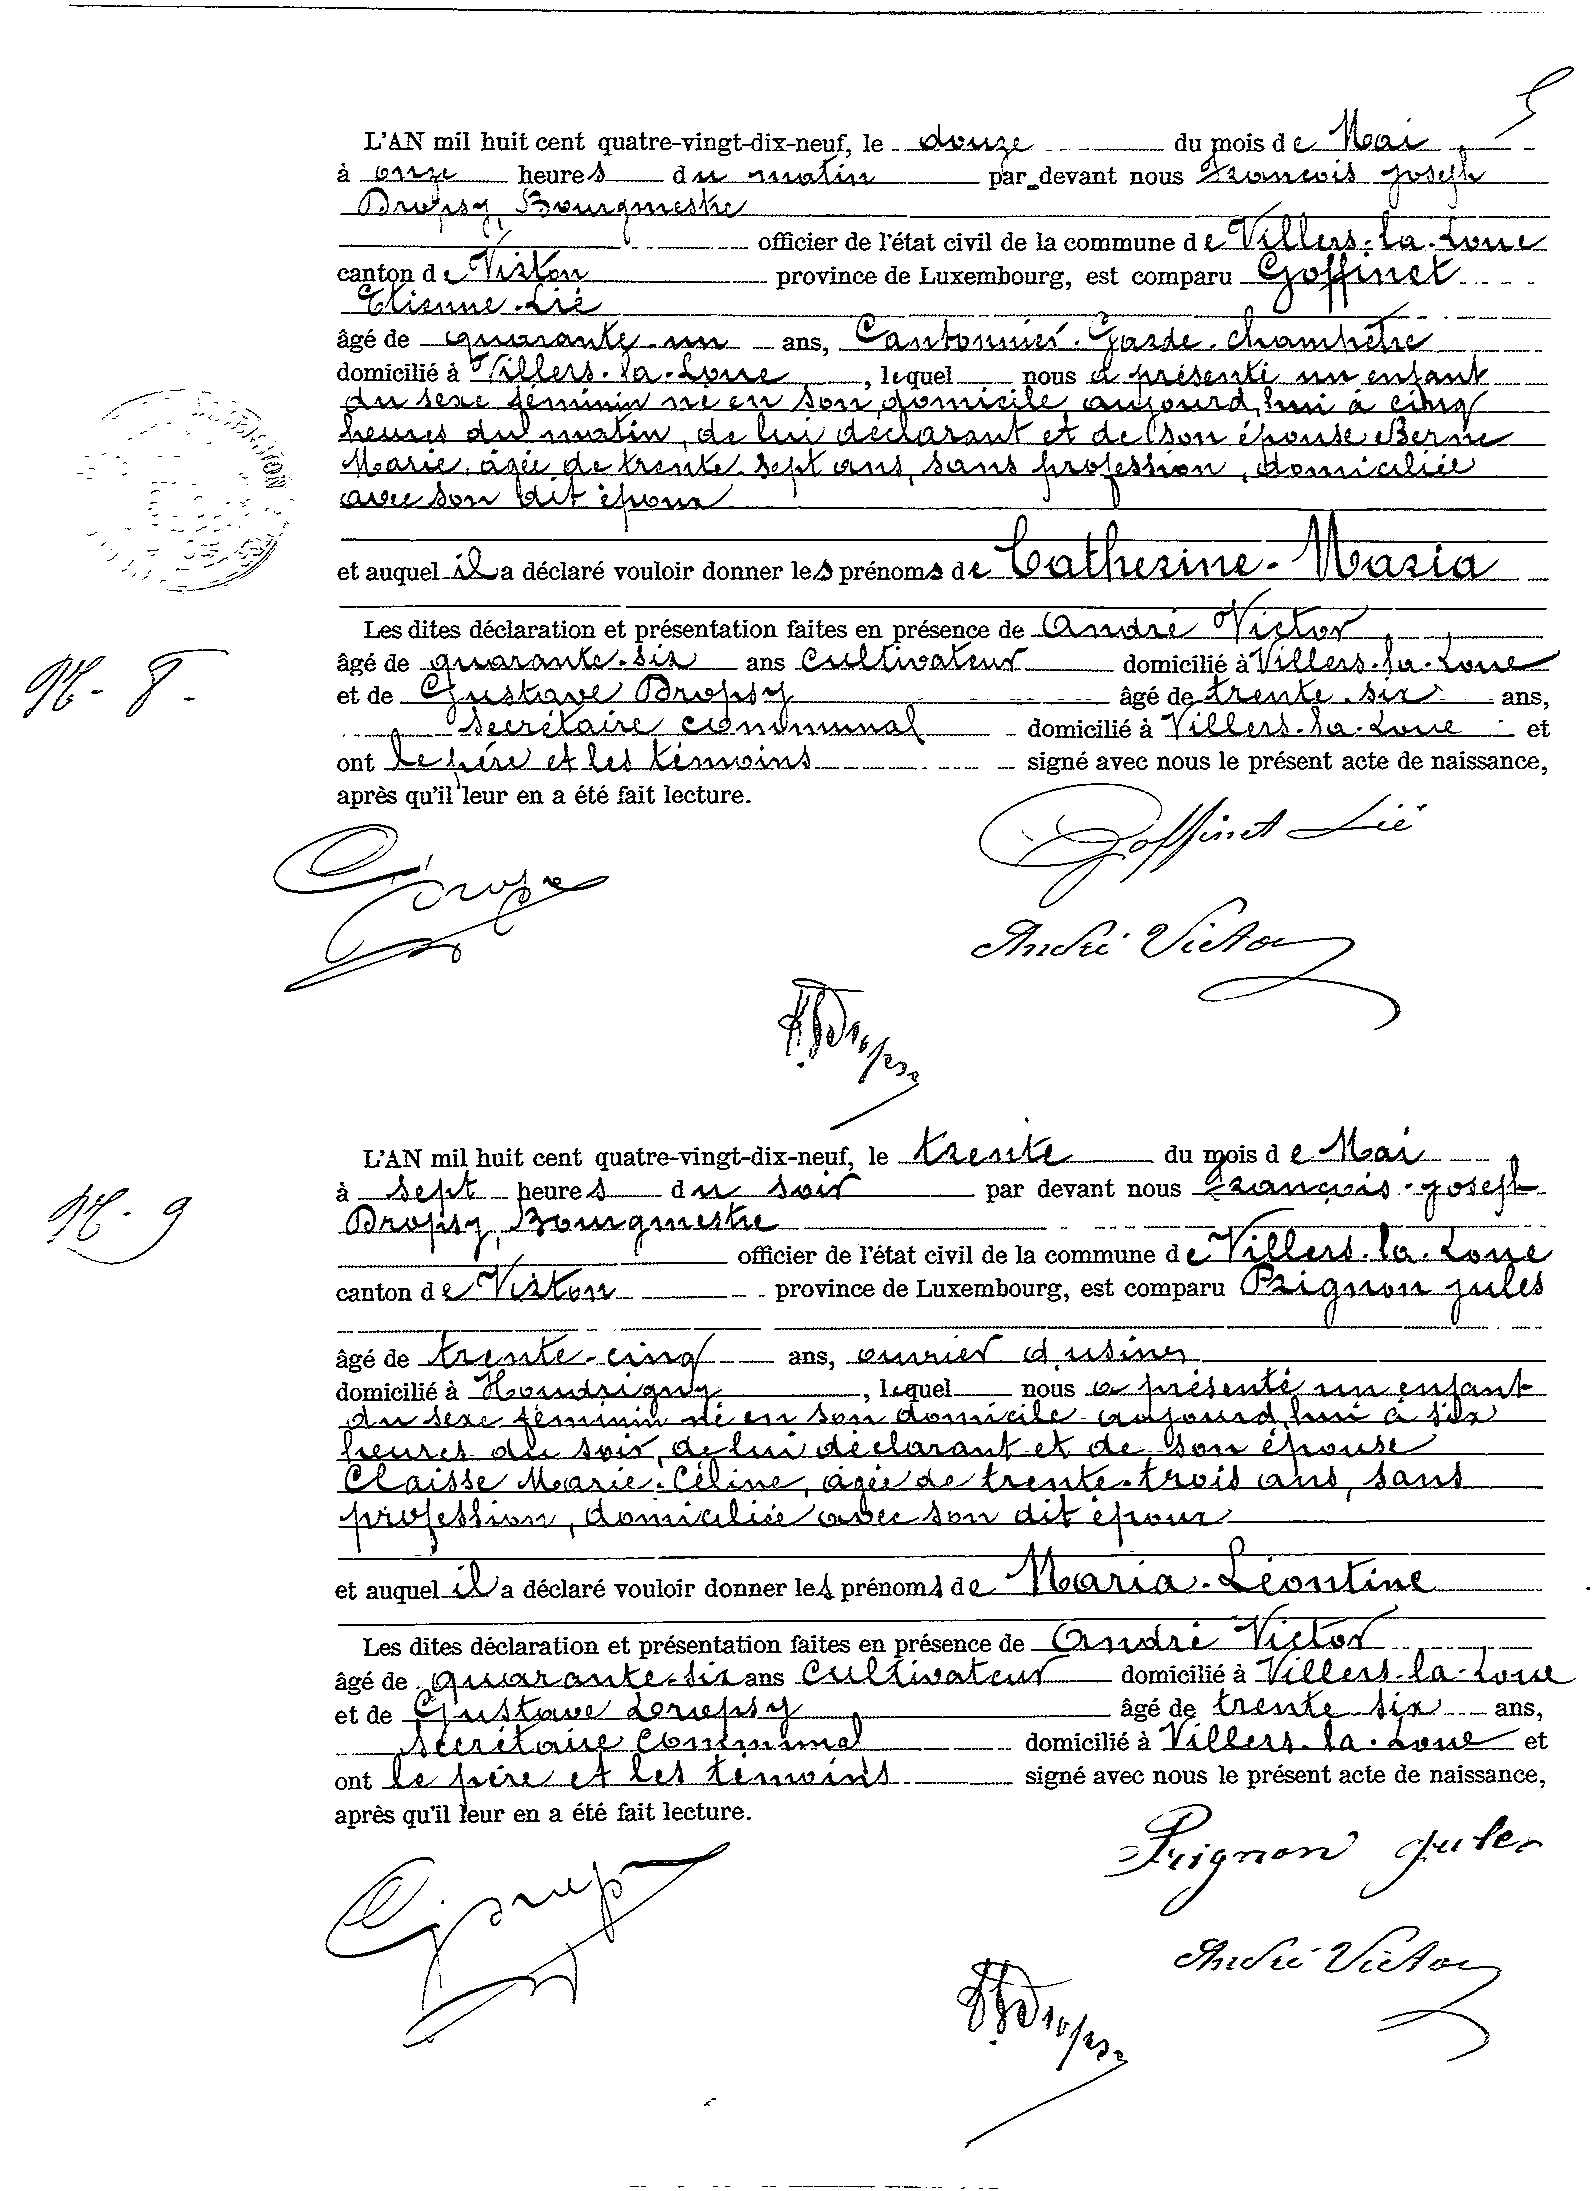 5
L'AN mil huit cent quatre-vingt-dix-neuf, le douze du mois de Mai
à onze heures du matin par devant nous François Joseph
Dropsy, Bourgmestre
officier de l'état civil de la commune de Villers-la-Loue
canton de Virton province de Luxembourg, est comparu Goffinet
Etienne-Lié
âgé de quarante-un ans, Cantonnier-Garde-Champêtre
domicilié à Villers-la-Loue, lequel nous a présenté un enfant
du sexe féminin né en son domicile aujourd'hui à cinq
heures du matin, de lui déclarant et de son épouse Berne
Marie, âgée de trente-sept ans, sans profession, domiciliée
avec son dit époux
et auquel il a déclaré vouloir donner les prénoms de Catherine-Maria
Les dites déclaration et présentation faites en présence de André Victor
N. 8.
âgé de quarante-six ans cultivateur domicilié à Villers-la-Loue
et de Gustave Dropsy âgé de trente-six ans,
secrétaire communal domicilié à Villers-la-Loue et
ont le père et les témoins signé avec nous le présent acte de naissance,
après qu'il leur en a été fait lecture.
Goffinet Lié
Dropsy
André Victor
Dropsy
L'AN mil huit cent quatre-vingt-dix-neuf, le trente du mois de Mai
N. 9
à sept heures du soir par devant nous François-Joseph
Dropsy, Bourgmestre
officier de l'état civil de la commune de Villers-la-Loue
canton de Virton province de Luxembourg, est comparu Prignon Jules
âgé de trente-cinq ans, ouvrier d'usines
domicilié à Houdrigny, lequel nous a présenté un enfant
du sexe féminin né en son domicile aujourd'hui à six
heures du soir, de lui déclarant et de son épouse
Claisse Marie-Céline, âgée de trente-trois ans, sans
profession, domiciliée avec son dit époux
et auquel il a déclaré vouloir donner les prénoms de Maria-Léontine
Les dites déclaration et présentation faites en présence de André Victor
âgé de quarante-six ans cultivateur domicilié à Villers-la-Loue
et de Gustave Dropsy âgé de trente six ans,
secrétaire Communal domicilié à Villers-la-Loue et
ont le père et les témoins signé avec nous le présent acte de naissance,
après qu'il leur en a été fait lecture.
Prignon Jules
Dropsy
André Victor
Dropsy